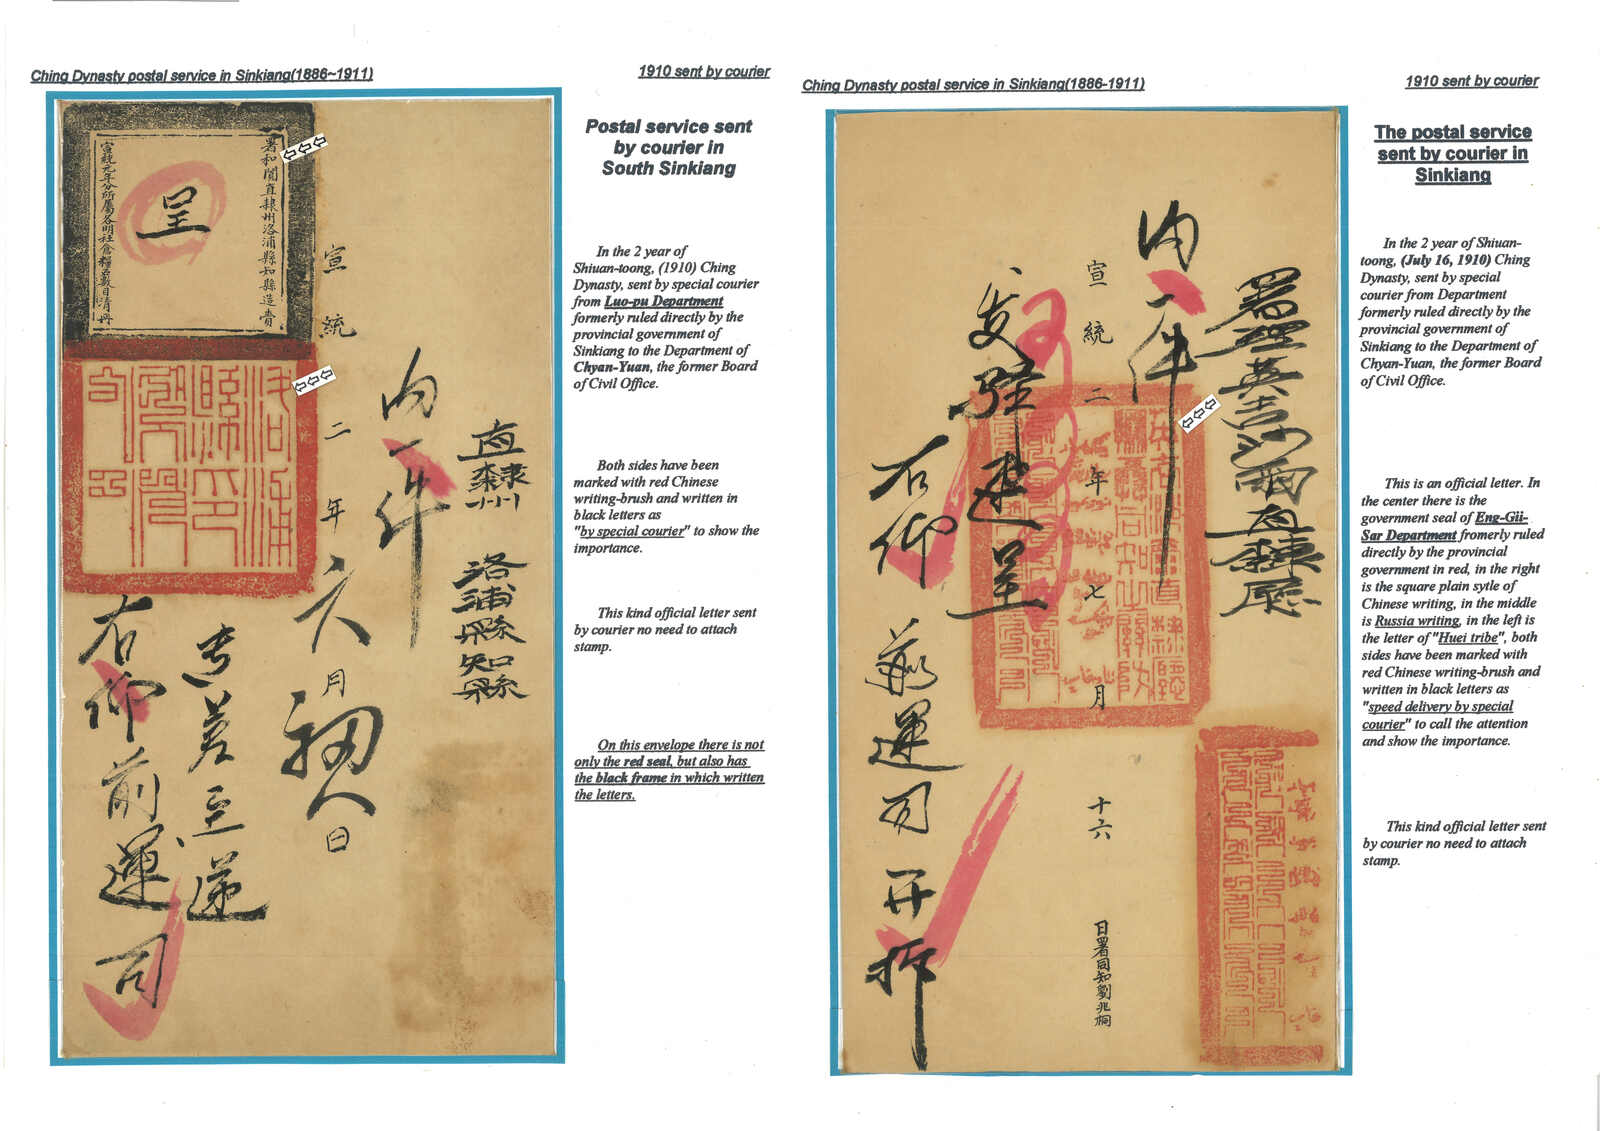 Ching Dynasty postal service in Sinkiang(1886~1911)
1910 sent by courier
Postal service sent
by courier in
South Sinkiang
In the 2 year of
Shiuan-toong, (1910) Ching
Dynasty, sent by special courier
from Luo-pu Department
formerly ruled directly by the
provincial government of
Sinkiang to the Department of
Chyan-Yuan, the former Board
of Civil Office.
Both sides have been
marked with red Chinese
writing-brush and written in
black letters as
"by special courier" to show the
importance.
This kind official letter sent
by courier no need to attach
stamp.
On this envelope there is not
only the red seal, but also has
the black frame in which written
the letters.
署和闐直隸州洛浦縣知縣造賫
呈
宣統元年分所屬各明社倉糧石數目清冊
直隸州 洛浦縣知縣
內一件
宣統二年六月初八日
右仰前運司
Ching Dynasty postal service in Sinkiang(1886-1911)
1910 sent by courier
The postal service
sent by courier in
Sinkiang
In the 2 year of Shiuan-
toong, (July 16, 1910) Ching
Dynasty, sent by special
courier from Department
formerly ruled directly by the
provincial government of
Sinkiang to the Department of
Chyan-Yuan, the former Board
of Civil Office.
This is an official letter. In
the center there is the
government seal of Eng-Gii-
Sar Department fromerly ruled
directly by the provincial
government in red, in the right
is the square plain sytle of
Chinese writing, in the middle
is Russia writing, in the left is
the letter of "Huei tribe", both
sides have been marked with
red Chinese writing-brush and
written in black letters as
"speed delivery by special
courier" to call the attention
and show the importance.
This kind official letter sent
by courier no need to attach
stamp.
署理英吉沙爾直隸廳
內一件
宣統二年七月十六日署同知劉兆桐
遞呈
右仰
運司開拆